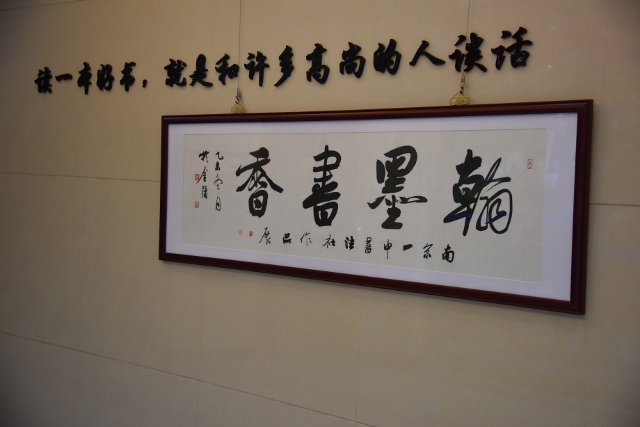 读一本好书，就是和许多高尚的人谈话
翰墨書香
南京一中書法社作品展
乙未冬月
於金陵